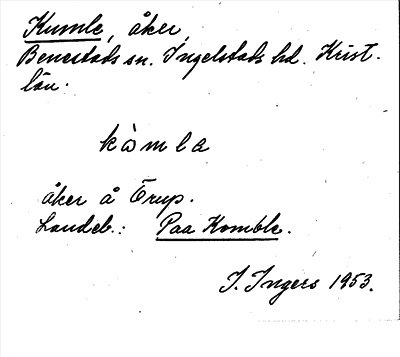 Kumle, åker,
Benestads sn. Ingelstads hd. Krist.
län.
kòmla
åker å Örup.
Landeb.: Paa Komble.
I. Ingers 1953.